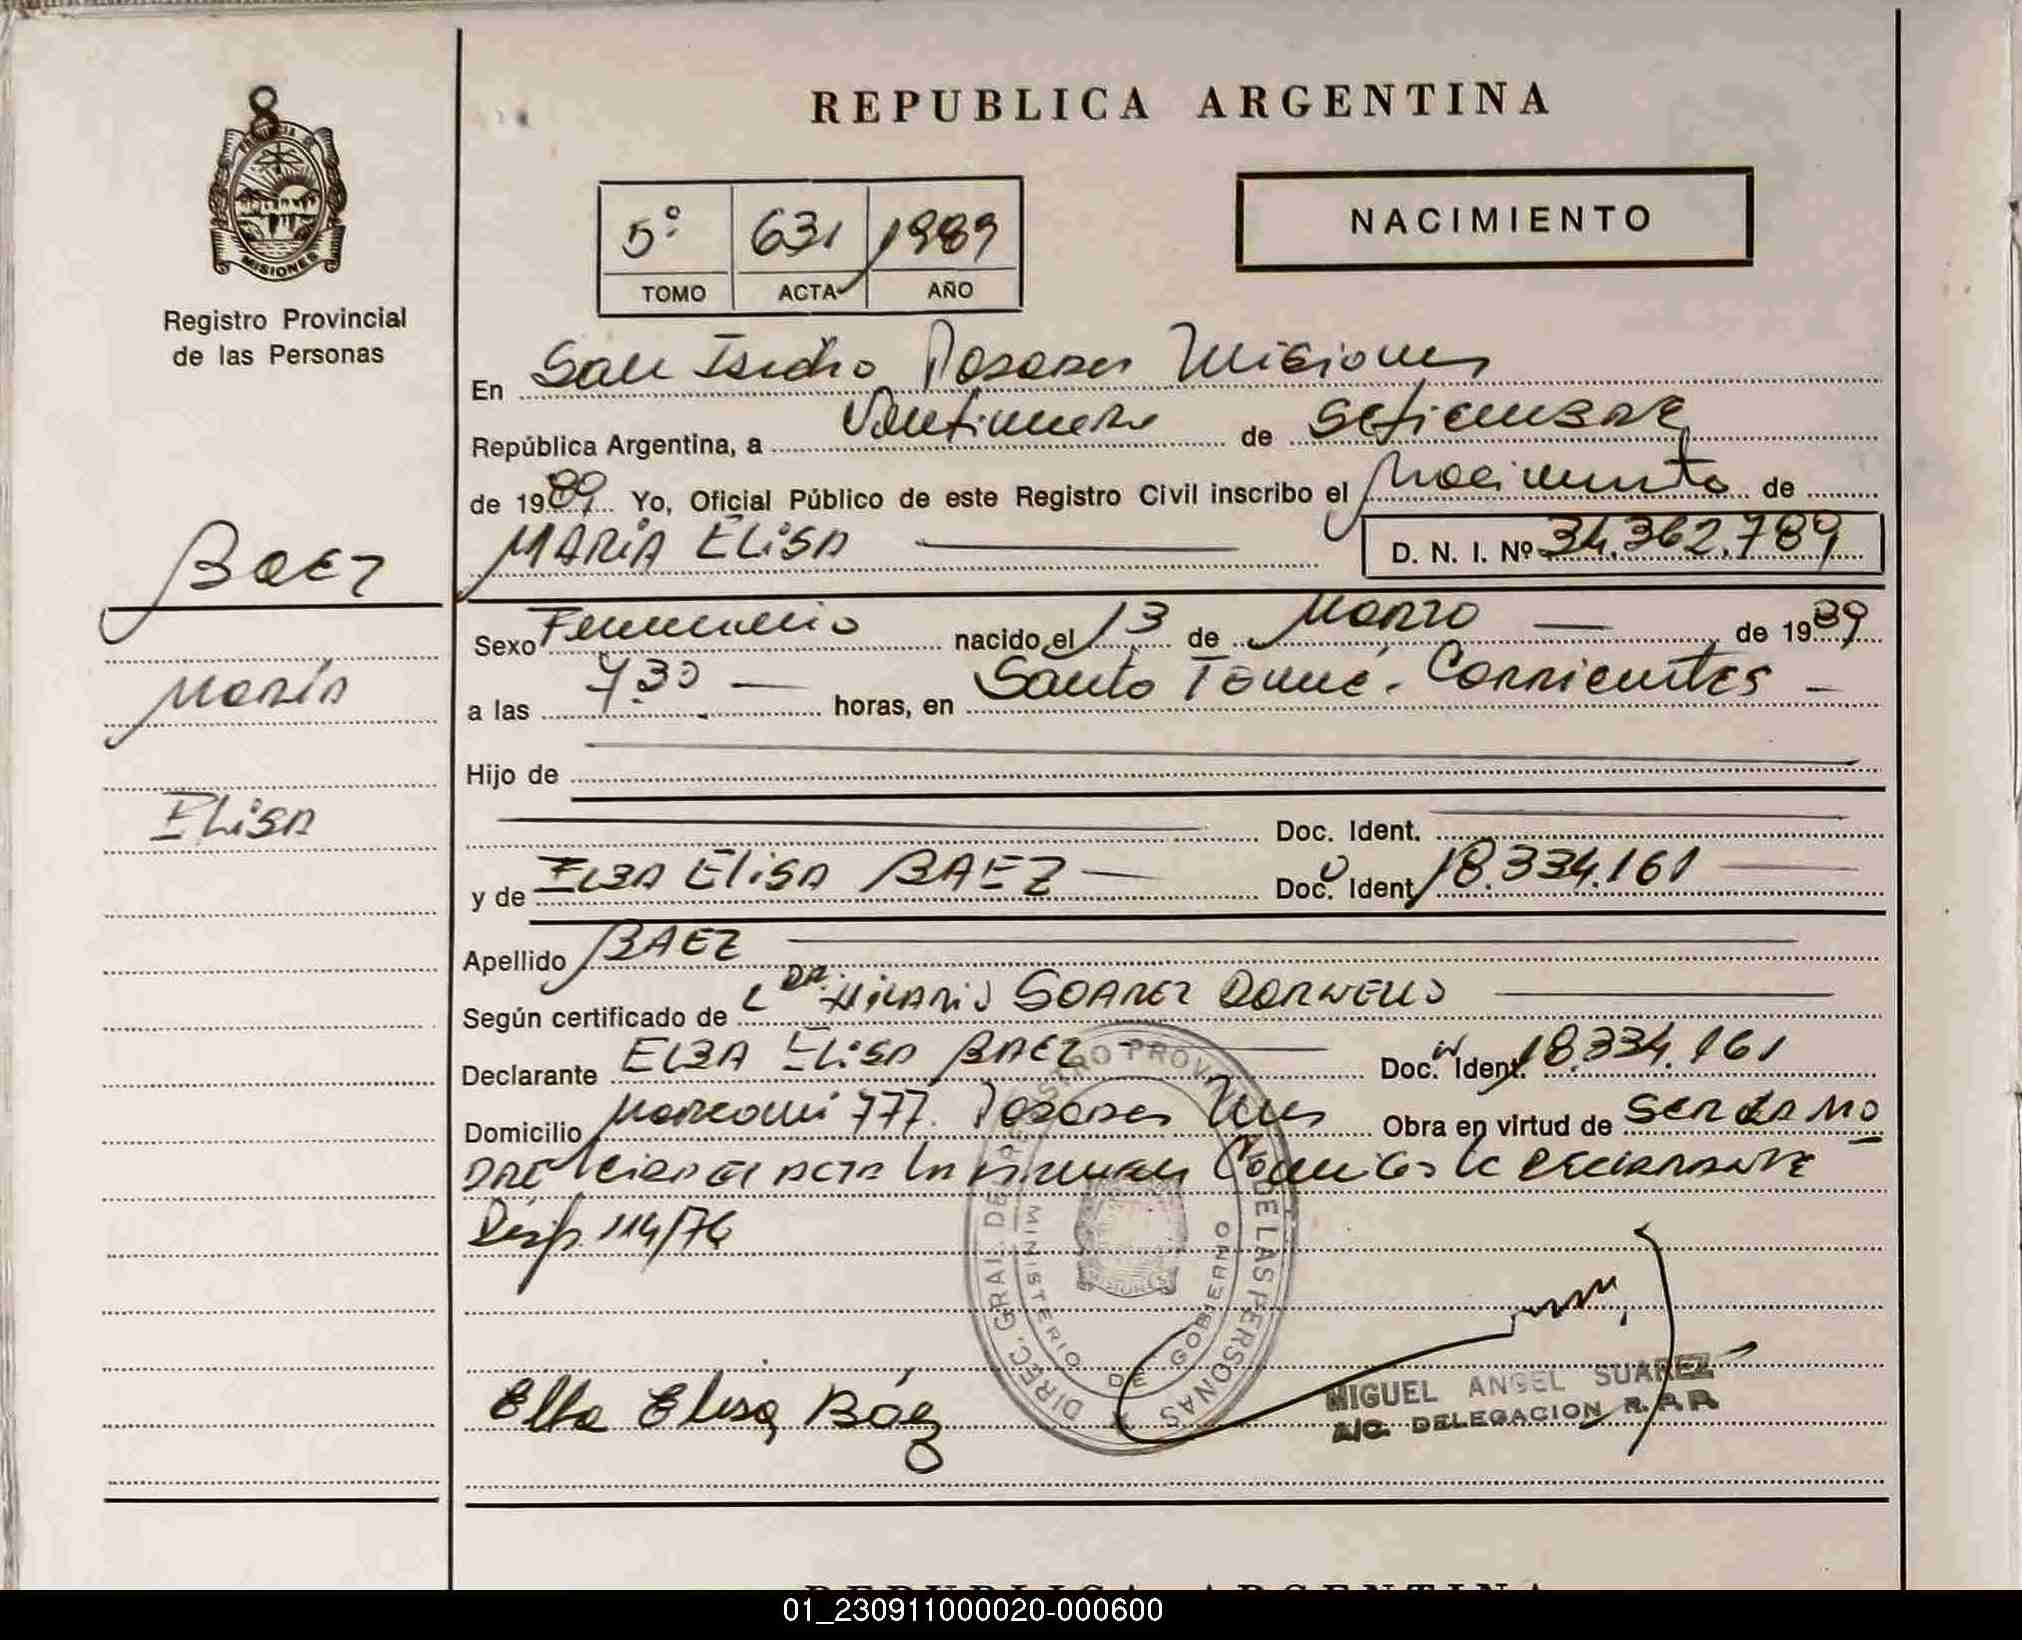 REPUBLICA ARGENTINA
MISIONES
Registro Provincial
de las Personas
5º 631 1989
TOMO ACTA AÑO
NACIMIENTO
En San Isidro Posadas Misiones
República Argentina, a de Setiembre
de 1989 Yo, Oficial Público de este Registro Civil inscribo el Nacimiento de
MARIA ELISA D. N. I. Nº 34.362.789
Baez
María
Elisa
Sexo Femenino nacido el 13 de Marzo de 1989
a las 7,30 horas, en Santo Tomé. Corrientes
Hijo de
Doc. Ident.
y de ELBA ELISA BAEZ Doc. Ident. 18.334.161
Apellido BAEZ
Según certificado de Dr. Hilario
Declarante ELBA ELISA BAEZ Doc. Ident. 18.334.161
Domicilio Marconi 777. Posadas Mnes Obra en virtud de ser la ma
dre
Disp. 114/76
DIREC. GRAL. DEL REGISTRO PROVINCIAL DE LAS PERSONAS
MINISTERIO DE GOBIERNO
Elba Elisa Báez
MIGUEL ANGEL SUAREZ
A/C. DELEGACION R. P. P.
REPUBLICA ARGENTINA
01_230911000020-000600